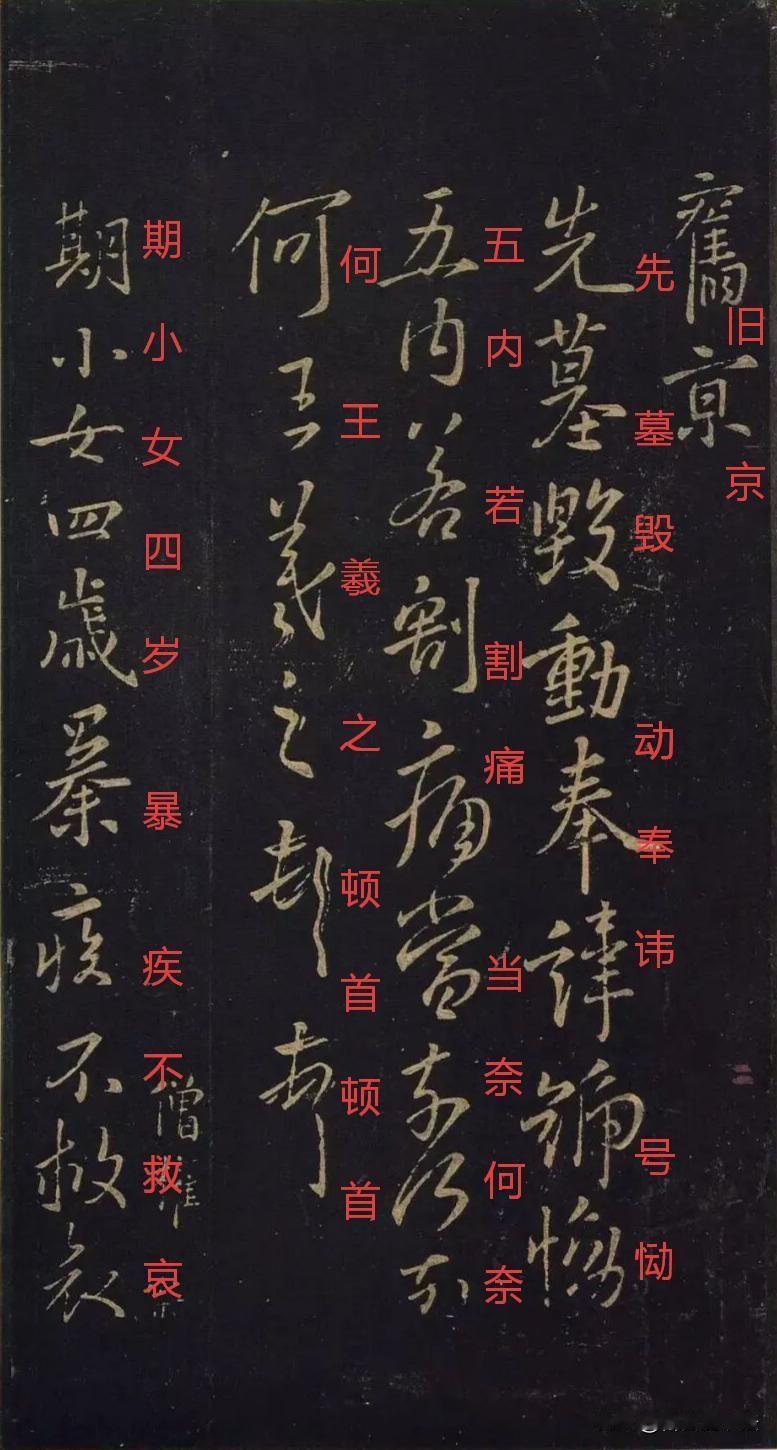 旧京
舊京
先墓毁动奉讳号恸
先墓毀動奉諱號慟
五内若割痛当奈何奈
五内若割痛當奈何奈
何王羲之顿首顿首
何王羲之頓首頓首
僧權
期小女四岁暴疾不救哀
期小女四歲暴疾不救哀